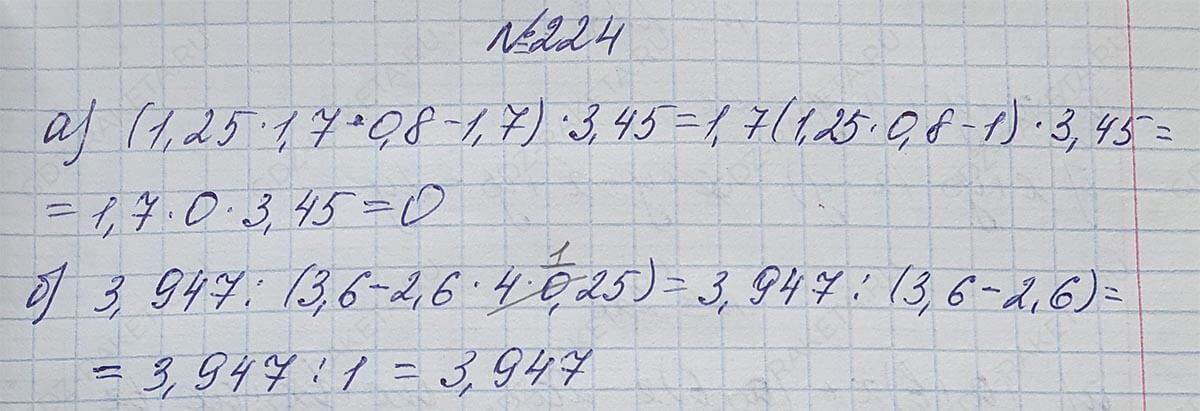 №224
а) (1,25·1,7·0,8-1,7)·3,45=1,7(1,25·0,8-1)·3,45=
=1,7·0·3,45=0
1
б) 3,947:(3,6-2,6·4·0,25)=3,947:(3,6-2,6)=
=3,947:1=3,947